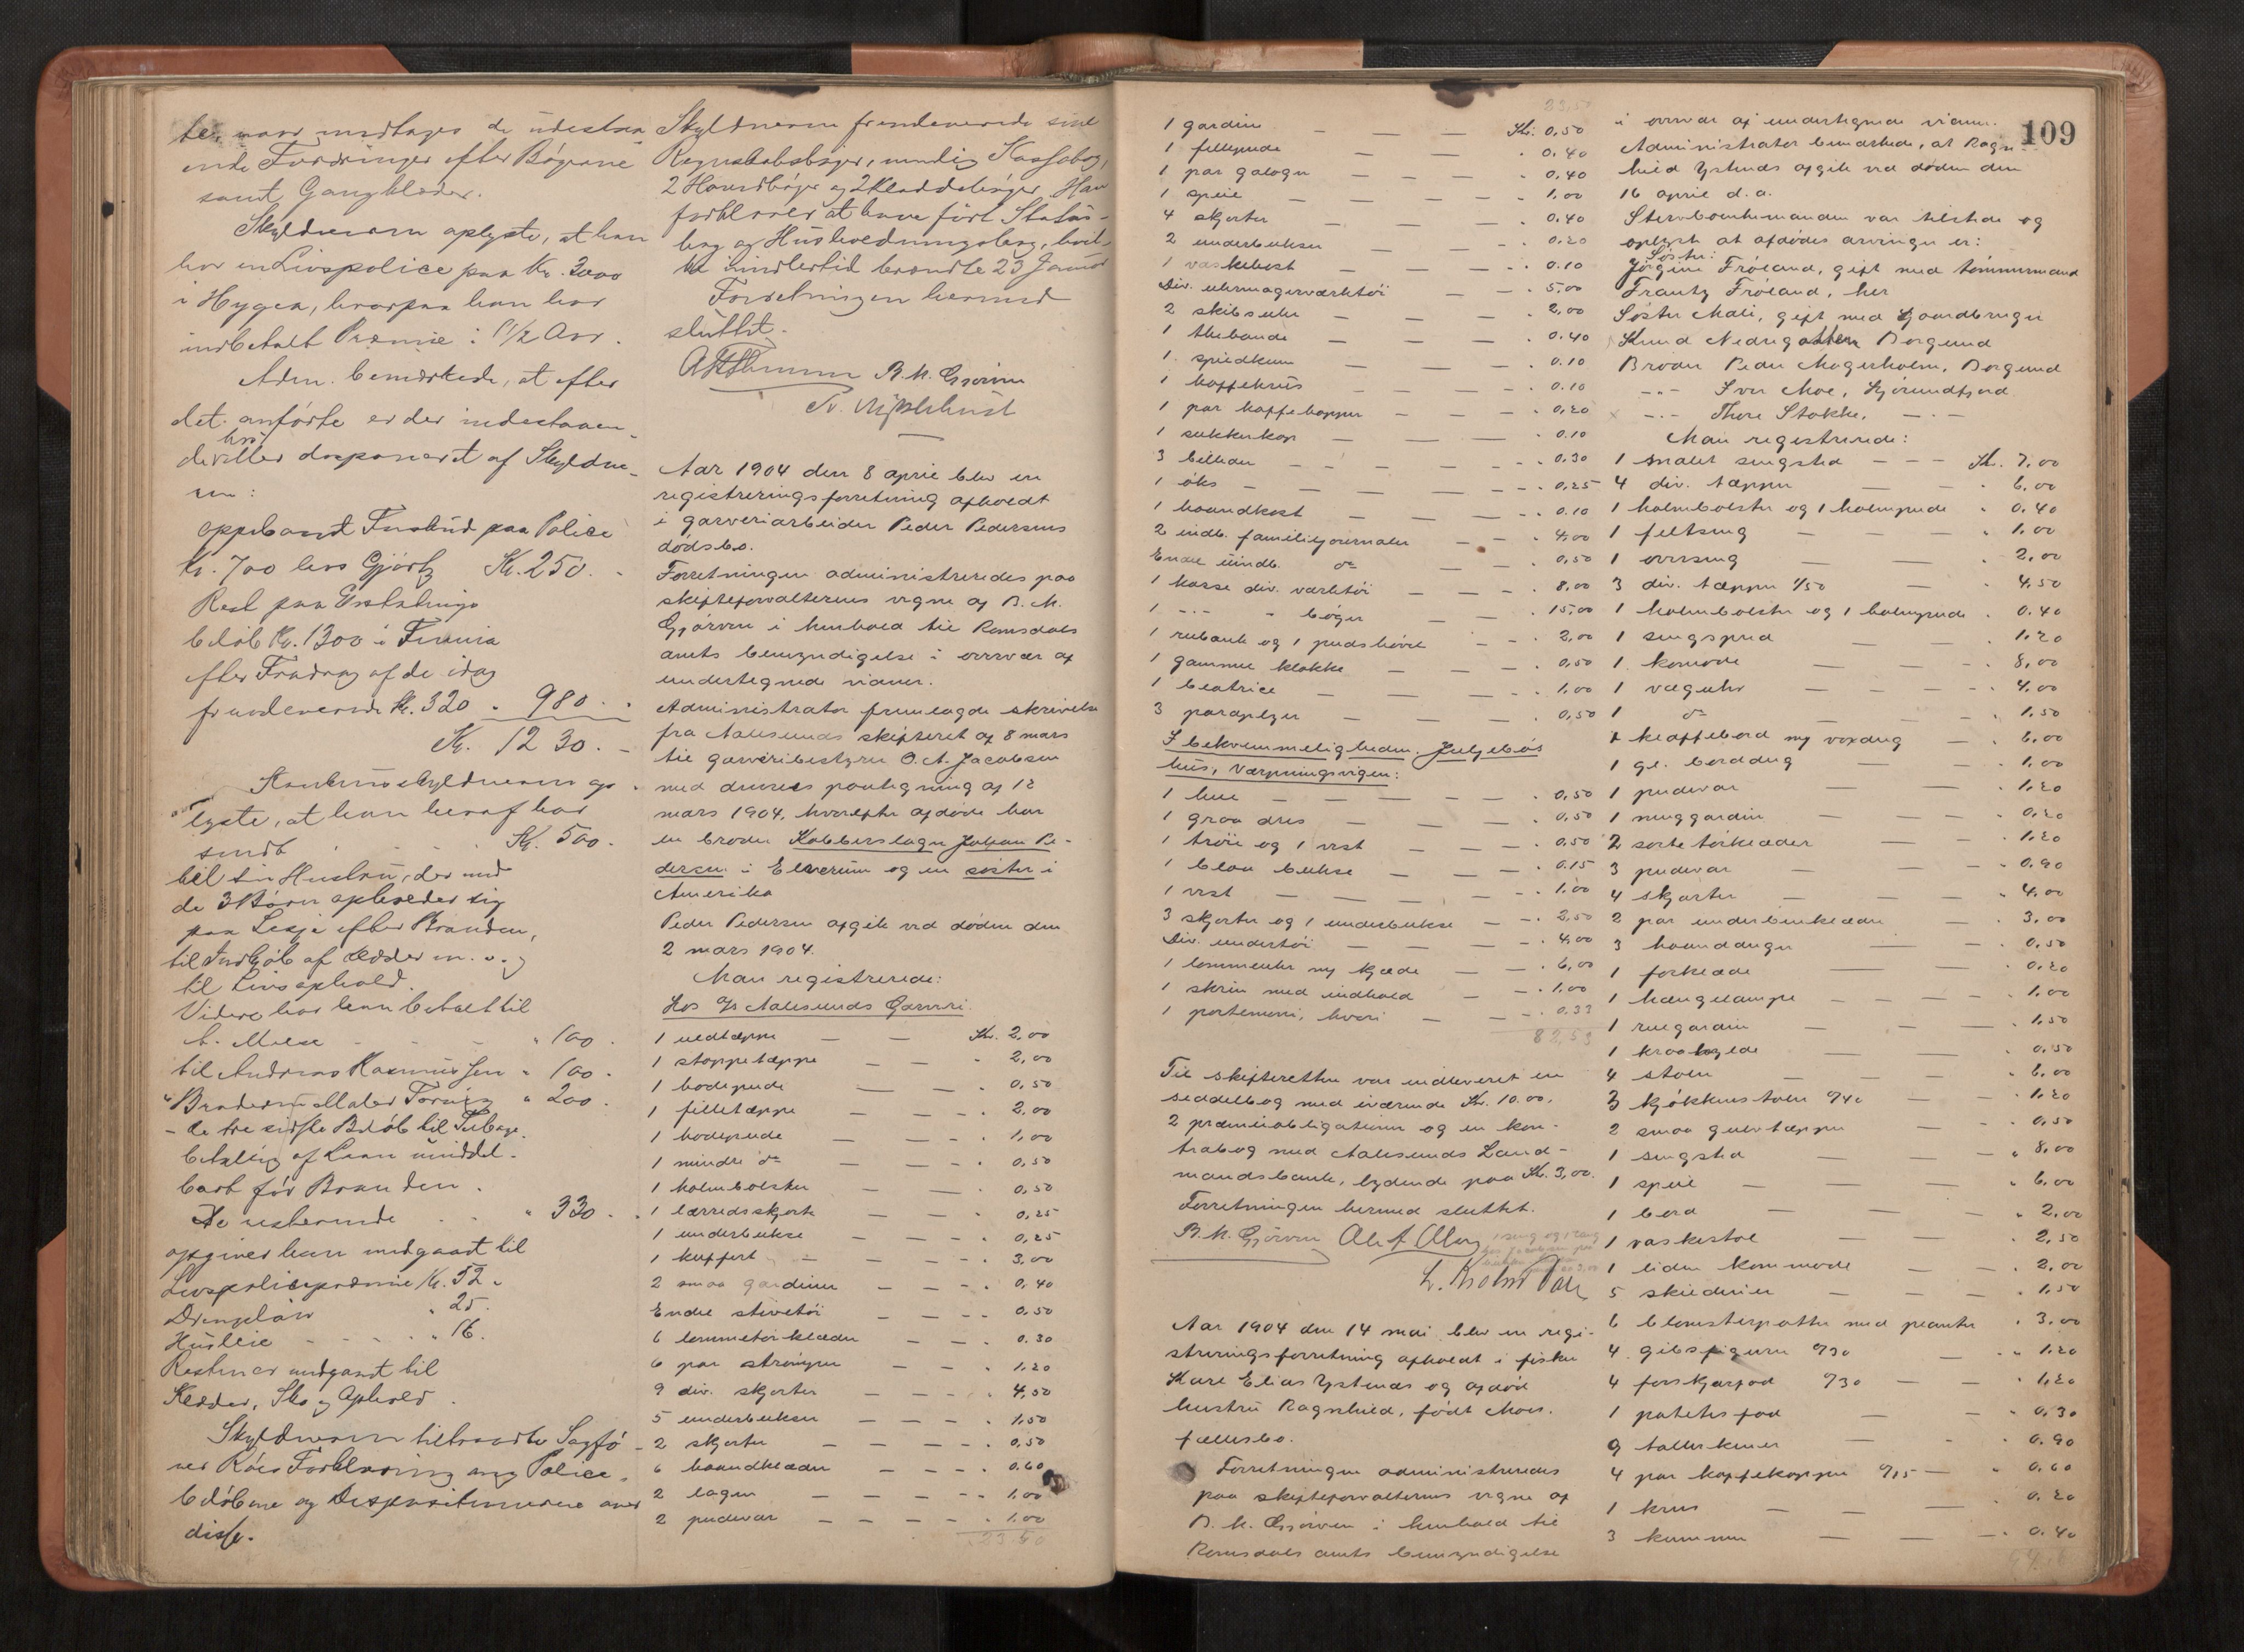 ter, naar undtages de udestaa
ende Fordringer efter Bøgerne
samt Gangklæder.
Skyldneren oplyste, at han
har en Livspolice paa Kr. 3000
i Hygea, hvorpaa han har
indbetalt Præmie i 1½ Aar.
Adm. bemærkede, at efter
det anførte er der indestaaen-
de eller disponeret af Skyldne-
ren:
oppebaaret Forskud paa Police
Kr. 700 hos Gjørtz Kr. 250. -
Rest paa Erstatnings
beløb Kr. 1300 i Fennia
efter Fradrag af de idag
fremleverede Kr. 320 „ 980. -
Kr. 1230. -
Konkursskyldneren op-
lyste, at han heraf har
sendt Kr. 500. -
til sin Hustru, der med
de 3 Børn opholder sig
paa Lesje efter Branden,
til Indkjøb af Klæder m. v. og
til Livsophold.
Videre har han betalt til
„ 100 -
til Andreas Rasmussen „ 100 -
„ 200 -
- de tre sidste Beløb til Tilbage-
betaling af Laan umiddel-
bart før Branden.
De resterende „ 330 -
opgiver han medgaaet til
Livspolicepræmie Kr. 52 „
„ 25.
Husleie „ 16.
Resten er medgaaet til
Klæder, Sko og Ophold.
Skyldneren tiltraadte Sagfø-
rer Røes Forklaring ang. Police-
beløbene og Dispositionerne over
disse.
Skyldneren fremleverede sine
Regnskabsbøger, nemlig Kassabog,
2 Hovedbøger og 2 Kladdebøger. Han
forklarer at have ført Status-
bog og Husholdningsbog, hvil-
ke imidlertid brændte 23 Januar
Forretningen hermed
sluttet.
B. M. Gjørven
Aar 1904 den 8 april blev en
registreringsforretning afholdt
i garveriarbeider Peder Pedersens
dødsbo.
Forretningen administreredes paa
skifteforvalterens vegne af B. M.
Gjørven i henhold til Romsdals
amts bemyndigelse i overvær af
undertegnede vidner.
Administrator fremlagde skrivelse
fra Aalesunds skifteret af 8 mars
til garveribestyrer O. A. Jacobsen
med dennes paategning af 12
mars 1904, hvorefter afdøde har
en broder Kobberslager Johan Pe-
dersen i Elverum og en søster i
Amerika
Peder Pedersen afgik ved døden den
2 mars 1904.
Man registrerede:
Hos Js Aalesunds Garveri.
1 uldtæppe — — Kr. 2,00
1 stoppetæppe — — - 2,00
1 hodepude — — - 0,50
1 filletæppe — — - 2,00
1 hodepude — — - 1,00
1 mindre do — — - 0,50
1 halmbolster — — - 0,50
1 lærredsskjorte — — - 0,25
1 underbukse — — - 0,25
1 kuffert — — - 3,00
2 smaa gardiner — — - 0,40
Endel stivetøi — — - 0,50
6 lommetørklæder — — - 0.30
6 par strømper — — - 1,20
9 div. skjorter — — - 4,50
5 underbukser — — - 1,50
2 skjorter — — - 0,50
6 haandklæder — — - 0.60
2 lagen — — - 1,00
2 pudevar — — - 1.00
23.50
23,50
1 gardin — — — Kr. 0,50
1 fillepude — — - 0,40
1 par galoger — — - 0,40
1 speil — — - 1,00
4 skjorter — — - 0,40
2 underbukser — — - 0,20
1 vaskekost — — - 0.10
Div. uhrmagerværktøi — - 5,00
2 skibsuhr — — - 2,00
1 thekande — — - 0.40
1 — — - 0.10
1 kaffekrus — — - 0.10
1 par kaffekopper — — - 0,20
1 sukkerkop — — - 0.10
3 billeder — — - 0.30
1 øks — — - 0,25
1 haandkost — — - 0.10
2 indb. familiejournaler — - 4,00
Endel uindb. do — - 0,50
1 kasse div. værktøi — — - 8,00
1 -.- - bøger — - 15,00
1 rubank og 1 pudshøvl — - 2,00
1 gammel klokke — — - 0,50
1 beatrice — — - 1,00
3 paraplyer — — - 0,50
I bekvemmeligheden. Juljebøs
hus, Værpningsvigen:
1 hue — — - 0,50
1 graa dres — — - 0,50
1 trøie og 1 vest — — - 0,50
1 blaa bukse — — - 0.15
1 vest — — - 1.00
3 skjorter og 1 underbukse — - 2,50
Div. undertøi — — - 4,00
1 lommeuhr m/ kjæde — — - 6,00
1 skrin med indhold — — - 1.00
1 portemonæ, hvori — — - 0.33
82,53
Til skifteretten var indleveret en
seddelbog med iværende Kr. 10.00.
2 præmieobligationer og en kon-
trabog med Aalesunds Land-
mandsbank, lydende paa Kr. 3,00.
Forretningen hermed sluttet.
B. M. Gjørven
Aar 1904 den 14 mai blev en regi-
streringsforretning afholdt i fisker
Karl Elias Ystenes og afdød
hustru Ragnhild, født Moes.
fællesbo.
Forretningen administreredes
paa skifteforvalterens vegne af
B. M. Gjørven i henhold til
Romsdals amts bemyndigelse
109
i overvær af undertegnede vidner.
Administrator bemærkede, at Ragn-
hild Ystenes afgik ved døden den
16 april d. a.
Stervboenkemanden var tilstede og
oplyste at afdødes arvinger er:
Søster:
Jørgine Frøland, gift med tømmermand
Frantz Frøland, her
Søster Mali, gift med gaardbruger
Knud Nedregotten Borgund
Broder Peder Magerholm, Borgund
-.- Iver Moe, Hjørundfjord
x -.- Thore Stokke, —.—
Man registrerede:
1 malet sengsted — — Kr. 7,00
4 div. tæpper — - 6,00
1 halmbolster og 1 halmpude - 0,40
1 feltseng — — - 1.00
1 overseng — — - 2,00
3 div. tæpper 1/50 — - 4,50
1 halmbolster og 1 halmpude - 0.40
1 sengspred — — - 1.20
1 komode — — - 8,00
1 væguhr — — - 4,00
1 do — — - 1,50
1 klaffebord m/ voxdug — - 6,00
1 gl. borddug — — - 1,00
1 pudevar — — - 1,20
1 — — - 0,20
2 sorte tørklæder — — - 1,20
3 pudevar — — - 0.90
4 skjorter — — - 4,00
2 par underbenklæder — - 3,00
3 haandduger — — - 0,50
1 forklæde — — - 0,20
1 hængelampe — — - 1.00
1 rulgardin — — - 1,50
1 — — - 0,50
4 stoler — — - 6.00
3 kjøkkenstoler 0/40 — - 1,20
2 smaa gulvtæpper — - 0,50
1 sengsted — — - 8,00
1 speil — — - 6,00
1 bord — — - 2,00
1 vaskestol — — - 2,50
1 liden kommode — — - 2,00
5 skilderier — — - 1,50
6 blomsterpotter med planter - 3,00
4 gibsfigurer 0/30 — - 1,20
4 ferskjærfad 0/30 — - 1,20
1 potetesfad — — - 0,30
9 tallerkener — — - 0.90
4 par kaffekopper 0/15 — - 0,60
1 krus — — - 0,20
3 kummer — — - 0.40